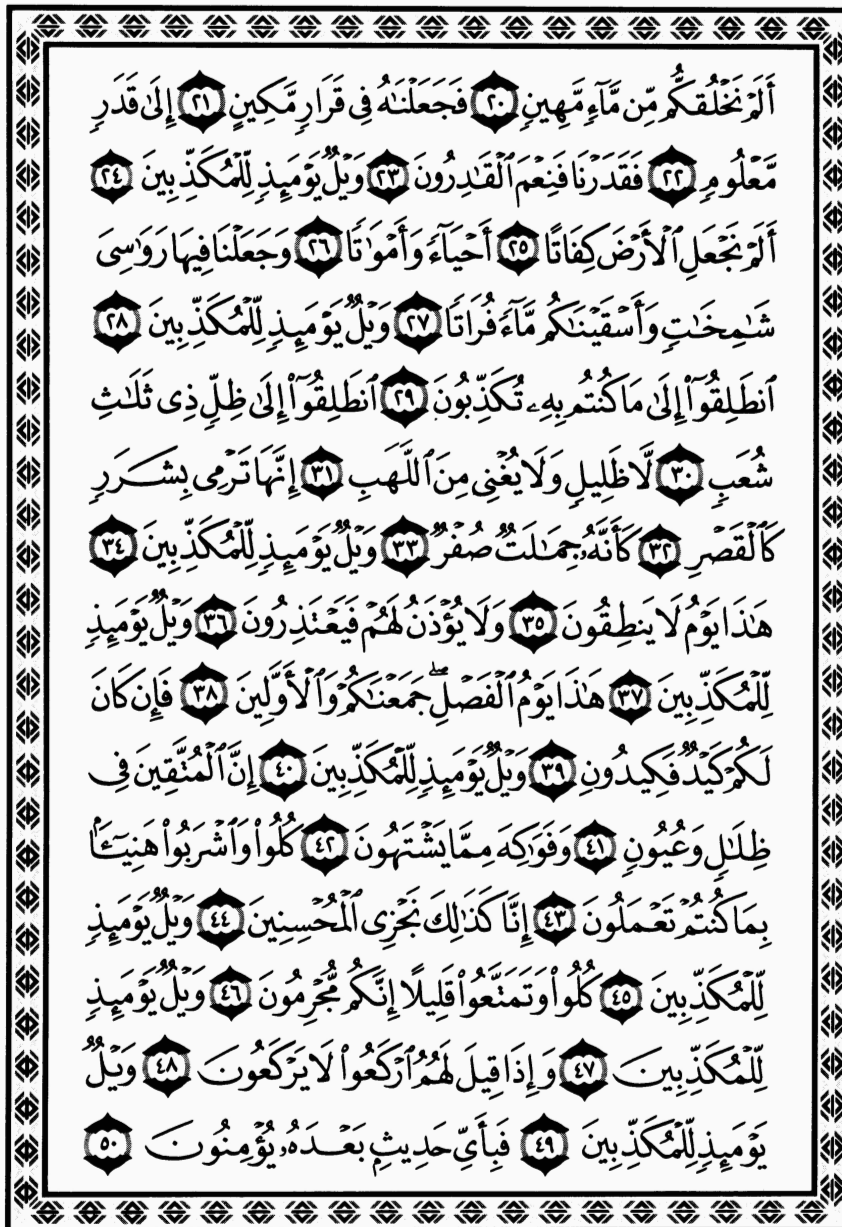 أَلَمۡ نَخۡلُقكُّم مِّن مَّآءٖ مَّهِينٖ ٢٠ فَجَعَلۡنَٰهُ فِي قَرَارٖ مَّكِينٍ ٢١ إِلَىٰ قَدَرٖ
مَّعۡلُومٖ ٢٢ فَقَدَرۡنَا فَنِعۡمَ ٱلۡقَٰدِرُونَ ٢٣ وَيۡلٞ يَوۡمَئِذٖ لِّلۡمُكَذِّبِينَ ٢٤
أَلَمۡ نَجۡعَلِ ٱلۡأَرۡضَ كِفَاتًا ٢٥ أَحۡيَآءٗ وَأَمۡوَٰتٗا ٢٦ وَجَعَلۡنَا فِيهَا رَوَٰسِيَ
شَٰمِخَٰتٖ وَأَسۡقَيۡنَٰكُم مَّآءٗ فُرَاتٗا ٢٧ وَيۡلٞ يَوۡمَئِذٖ لِّلۡمُكَذِّبِينَ ٢٨
ٱنطَلِقُوٓاْ إِلَىٰ مَا كُنتُم بِهِۦ تُكَذِّبُونَ ٢٩ ٱنطَلِقُوٓاْ إِلَىٰ ظِلّٖ ذِي ثَلَٰثِ
شُعَبٖ ٣٠ لَّا ظَلِيلٖ وَلَا يُغۡنِي مِنَ ٱللَّهَبِ ٣١ إِنَّهَا تَرۡمِي بِشَرَرٖ
كَٱلۡقَصۡرِ ٣٢ كَأَنَّهُۥ جِمَٰلَتٞ صُفۡرٞ ٣٣ وَيۡلٞ يَوۡمَئِذٖ لِّلۡمُكَذِّبِينَ ٣٤
هَٰذَا يَوۡمُ لَا يَنطِقُونَ ٣٥ وَلَا يُؤۡذَنُ لَهُمۡ فَيَعۡتَذِرُونَ ٣٦ وَيۡلٞ يَوۡمَئِذٖ
لِّلۡمُكَذِّبِينَ ٣٧ هَٰذَا يَوۡمُ ٱلۡفَصۡلِۖ جَمَعۡنَٰكُمۡ وَٱلۡأَوَّلِينَ ٣٨ فَإِن كَانَ
لَكُمۡ كَيۡدٞ فَكِيدُونِ ٣٩ وَيۡلٞ يَوۡمَئِذٖ لِّلۡمُكَذِّبِينَ ٤٠ إِنَّ ٱلۡمُتَّقِينَ فِي
ظِلَٰلٖ وَعُيُونٖ ٤١ وَفَوَٰكِهَ مِمَّا يَشۡتَهُونَ ٤٢ كُلُواْ وَٱشۡرَبُواْ هَنِيٓـَٔۢا
بِمَا كُنتُمۡ تَعۡمَلُونَ ٤٣ إِنَّا كَذَٰلِكَ نَجۡزِي ٱلۡمُحۡسِنِينَ ٤٤ وَيۡلٞ يَوۡمَئِذٖ
لِّلۡمُكَذِّبِينَ ٤٥ كُلُواْ وَتَمَتَّعُواْ قَلِيلًا إِنَّكُم مُّجۡرِمُونَ ٤٦ وَيۡلٞ يَوۡمَئِذٖ
لِّلۡمُكَذِّبِينَ ٤٧ وَإِذَا قِيلَ لَهُمُ ٱرۡكَعُواْ لَا يَرۡكَعُونَ ٤٨ وَيۡلٞ
يَوۡمَئِذٖ لِّلۡمُكَذِّبِينَ ٤٩ فَبِأَيِّ حَدِيثِۭ بَعۡدَهُۥ يُؤۡمِنُونَ ٥٠